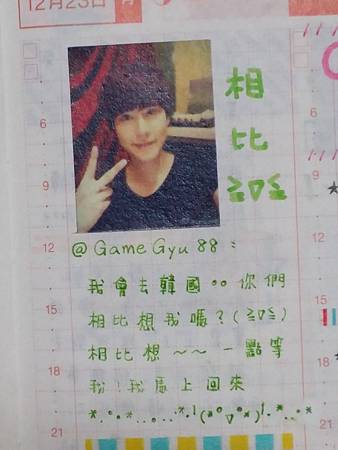 12月23日
相
比
≧▽≦
6
6
9
9
@GameGyu88:
12
我會去韓國。。你們
15
15
相比想我嗎?(≧▽≦)
相比想～～一點等
18
18
我!我馬上回來
21